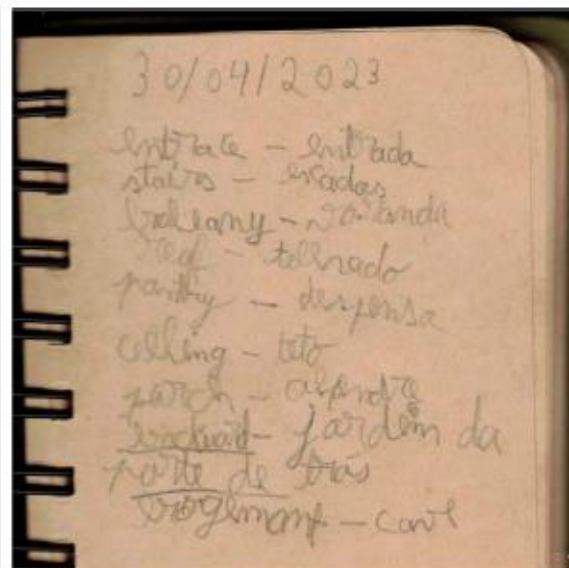 30/04/2023
entrace - entrada
stairs - escadas
balcany - varanda
roof - telhado
pantry - despensa
celling - teto
parch - alpendre
backuaid - jardim da
parte de trás
- cave